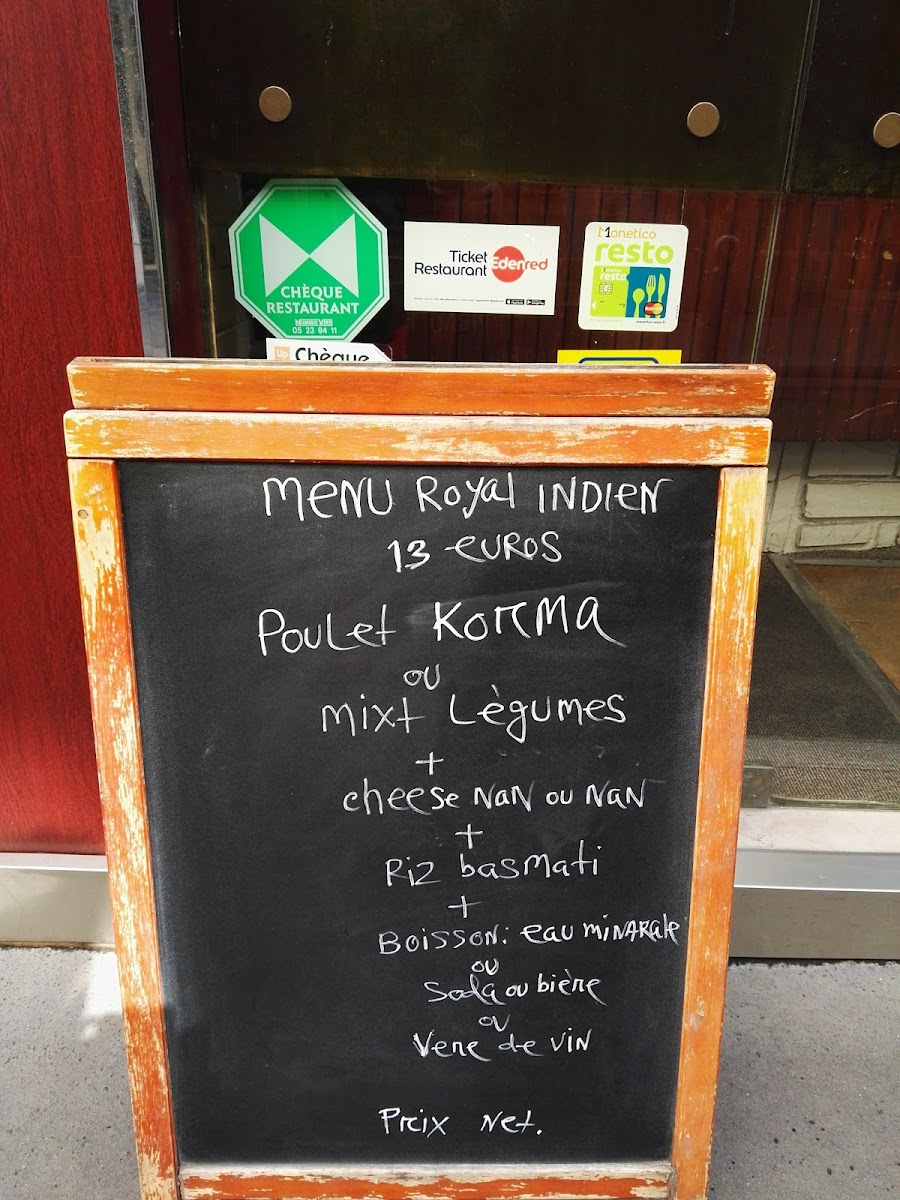 CHÈQUE
RESTAURANT
NUMERO VERT
05 23 94 11
Ticket
Restaurant
Edenred
Monetico
resto
resto
up Chèque
MENU Royal INDIEN
13 euros
Poulet Korma
ou
mixt Lègumes
+
cheese NaN ou NaN
+
Riz basmati
+
Boisson: eau miNARale
ou
Soda ou bière
ou
Verre de vin
Prix Net.